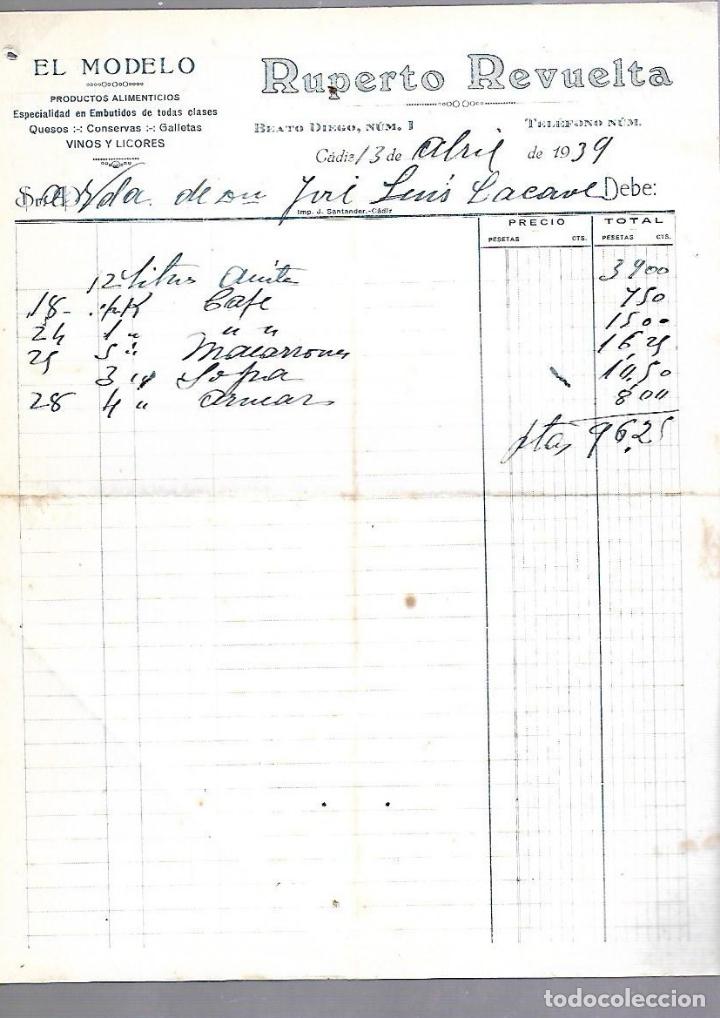 EL MODELO
PRODUCTOS ALIMENTICIOS
Especialidad en Embutidos de todas clases
Quesos :-: Conservas :-: Galletas
VINOS Y LICORES
Ruperto Revuelta
BEATO DIEGO, NÚM. 1 TELÉFONO NÚM.
Cádiz 13 de Abril de 1939
Vda. de Dn José Luis Lacave Debe:
Imp. J. Santander.-Cádiz
PRECIO TOTAL
PESETAS CTS. PESETAS CTS.
12 litros 39 00
18- K Cafe 7 50
24 1 " " " 15 00
25 5 " Macarrones 16 25
3 " Sopa 10,50
28 4 " 8 00
ptas 96.25
todocoleccion